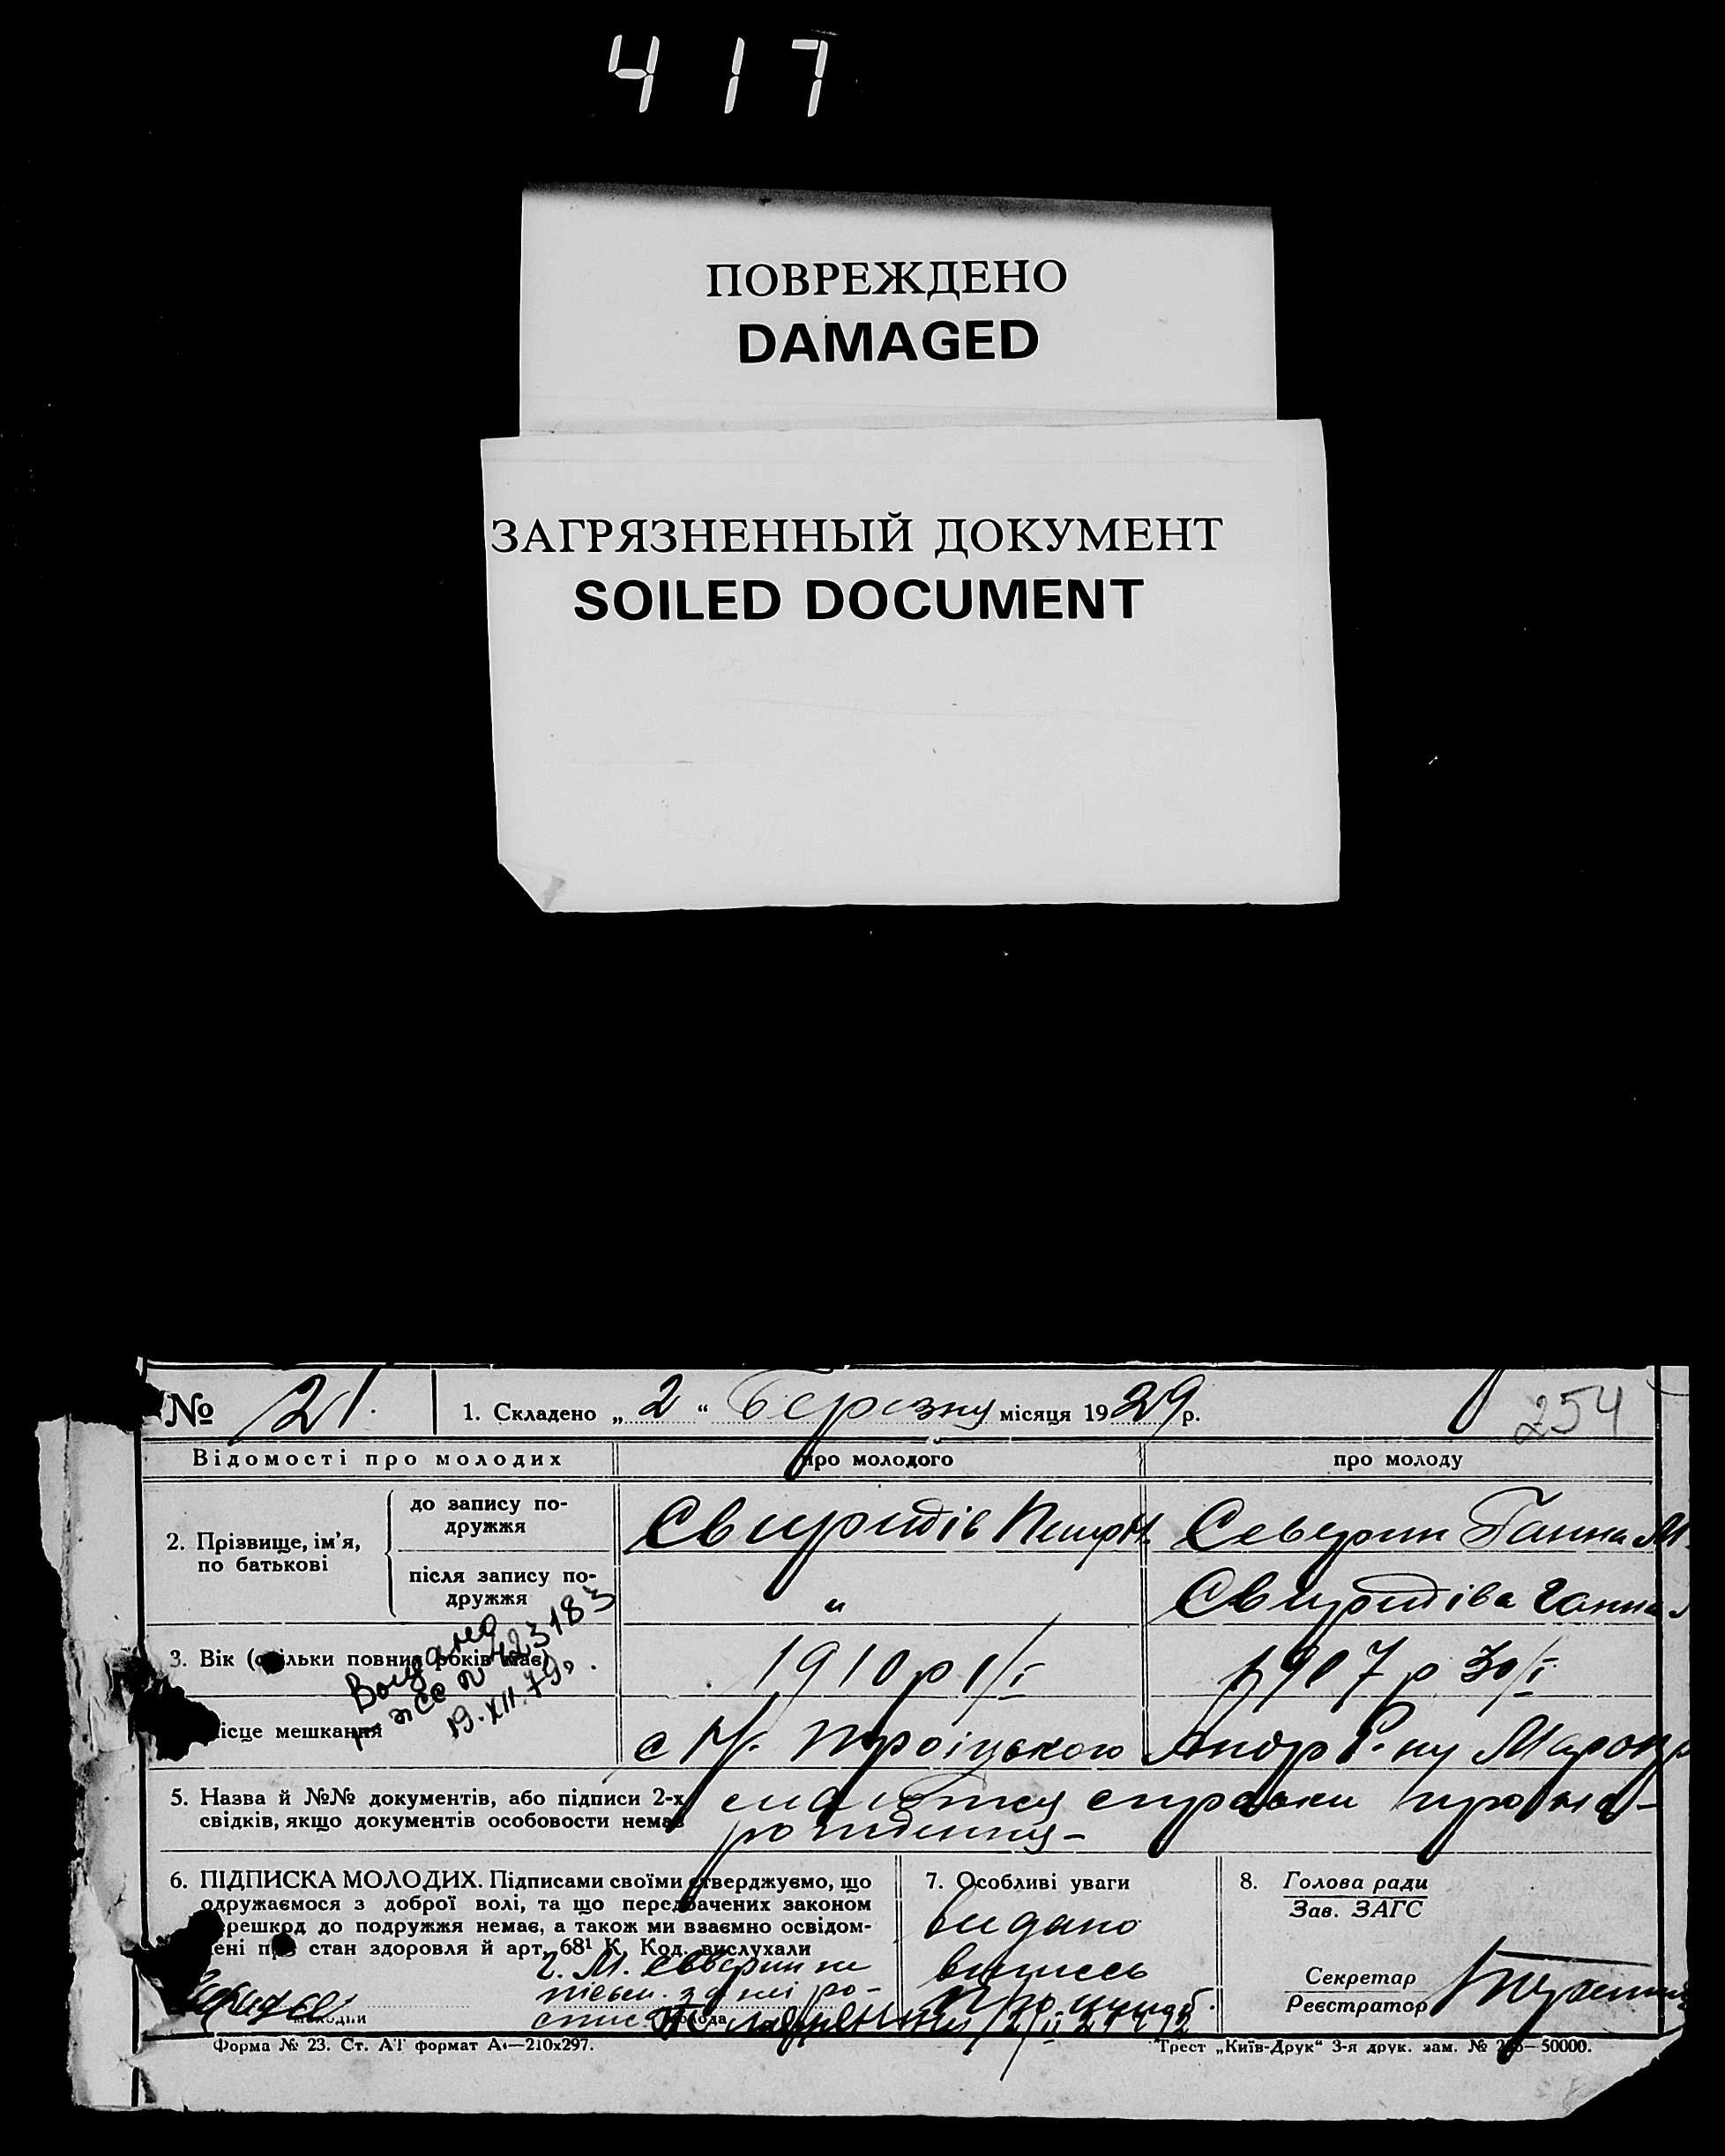 417
ПОВРЕЖДЕНО
DAMAGED
ЗАГРЯЗНЕННЫЙ ДОКУМЕНТ
SOILED DOCUMENT
№ 21. 1. Складено „ 2 “ Березня місяця 1929 р. 254
Відомості про молодих про молодого про молоду
2. Прізвище, ім'я, по батькові
до запису по-
дружжя
Свиридів Петр М. Северин Ганна М.
після запису по-
дружжя
" Свиридіва Ганна
3. Вік (скільки повних років має) 1910 р 1/I 1907 р 30/I
Видано
423183
19.XII.79
місце мешкання с Н. Троіцького
5. Назва й №№ документів, або підписи 2-х
свідків, якщо документів особовости немає
справки про на-
родження-
6. ПІДПИСКА МОЛОДИХ. Підписами своїми стверджуємо, що
одружаємося з доброї волі, та що передбачених законом
перешкод до подружжя немає, а також ми взаємно освідом-
лені про стан здоровля й арт. 68¹ К. Код. вислухали
Г. М. Северин не
пісьм. за неі ро-
молодий
молода
7. Особливі уваги
видано
випись
8. Голова ради
Зав. ЗАГС
Секретар
Реєстратор
Форма № 23. Ст. АТ формат А₄—210x297.
Трест „Київ-Друк“ 3-я друк. зам. № —50000.